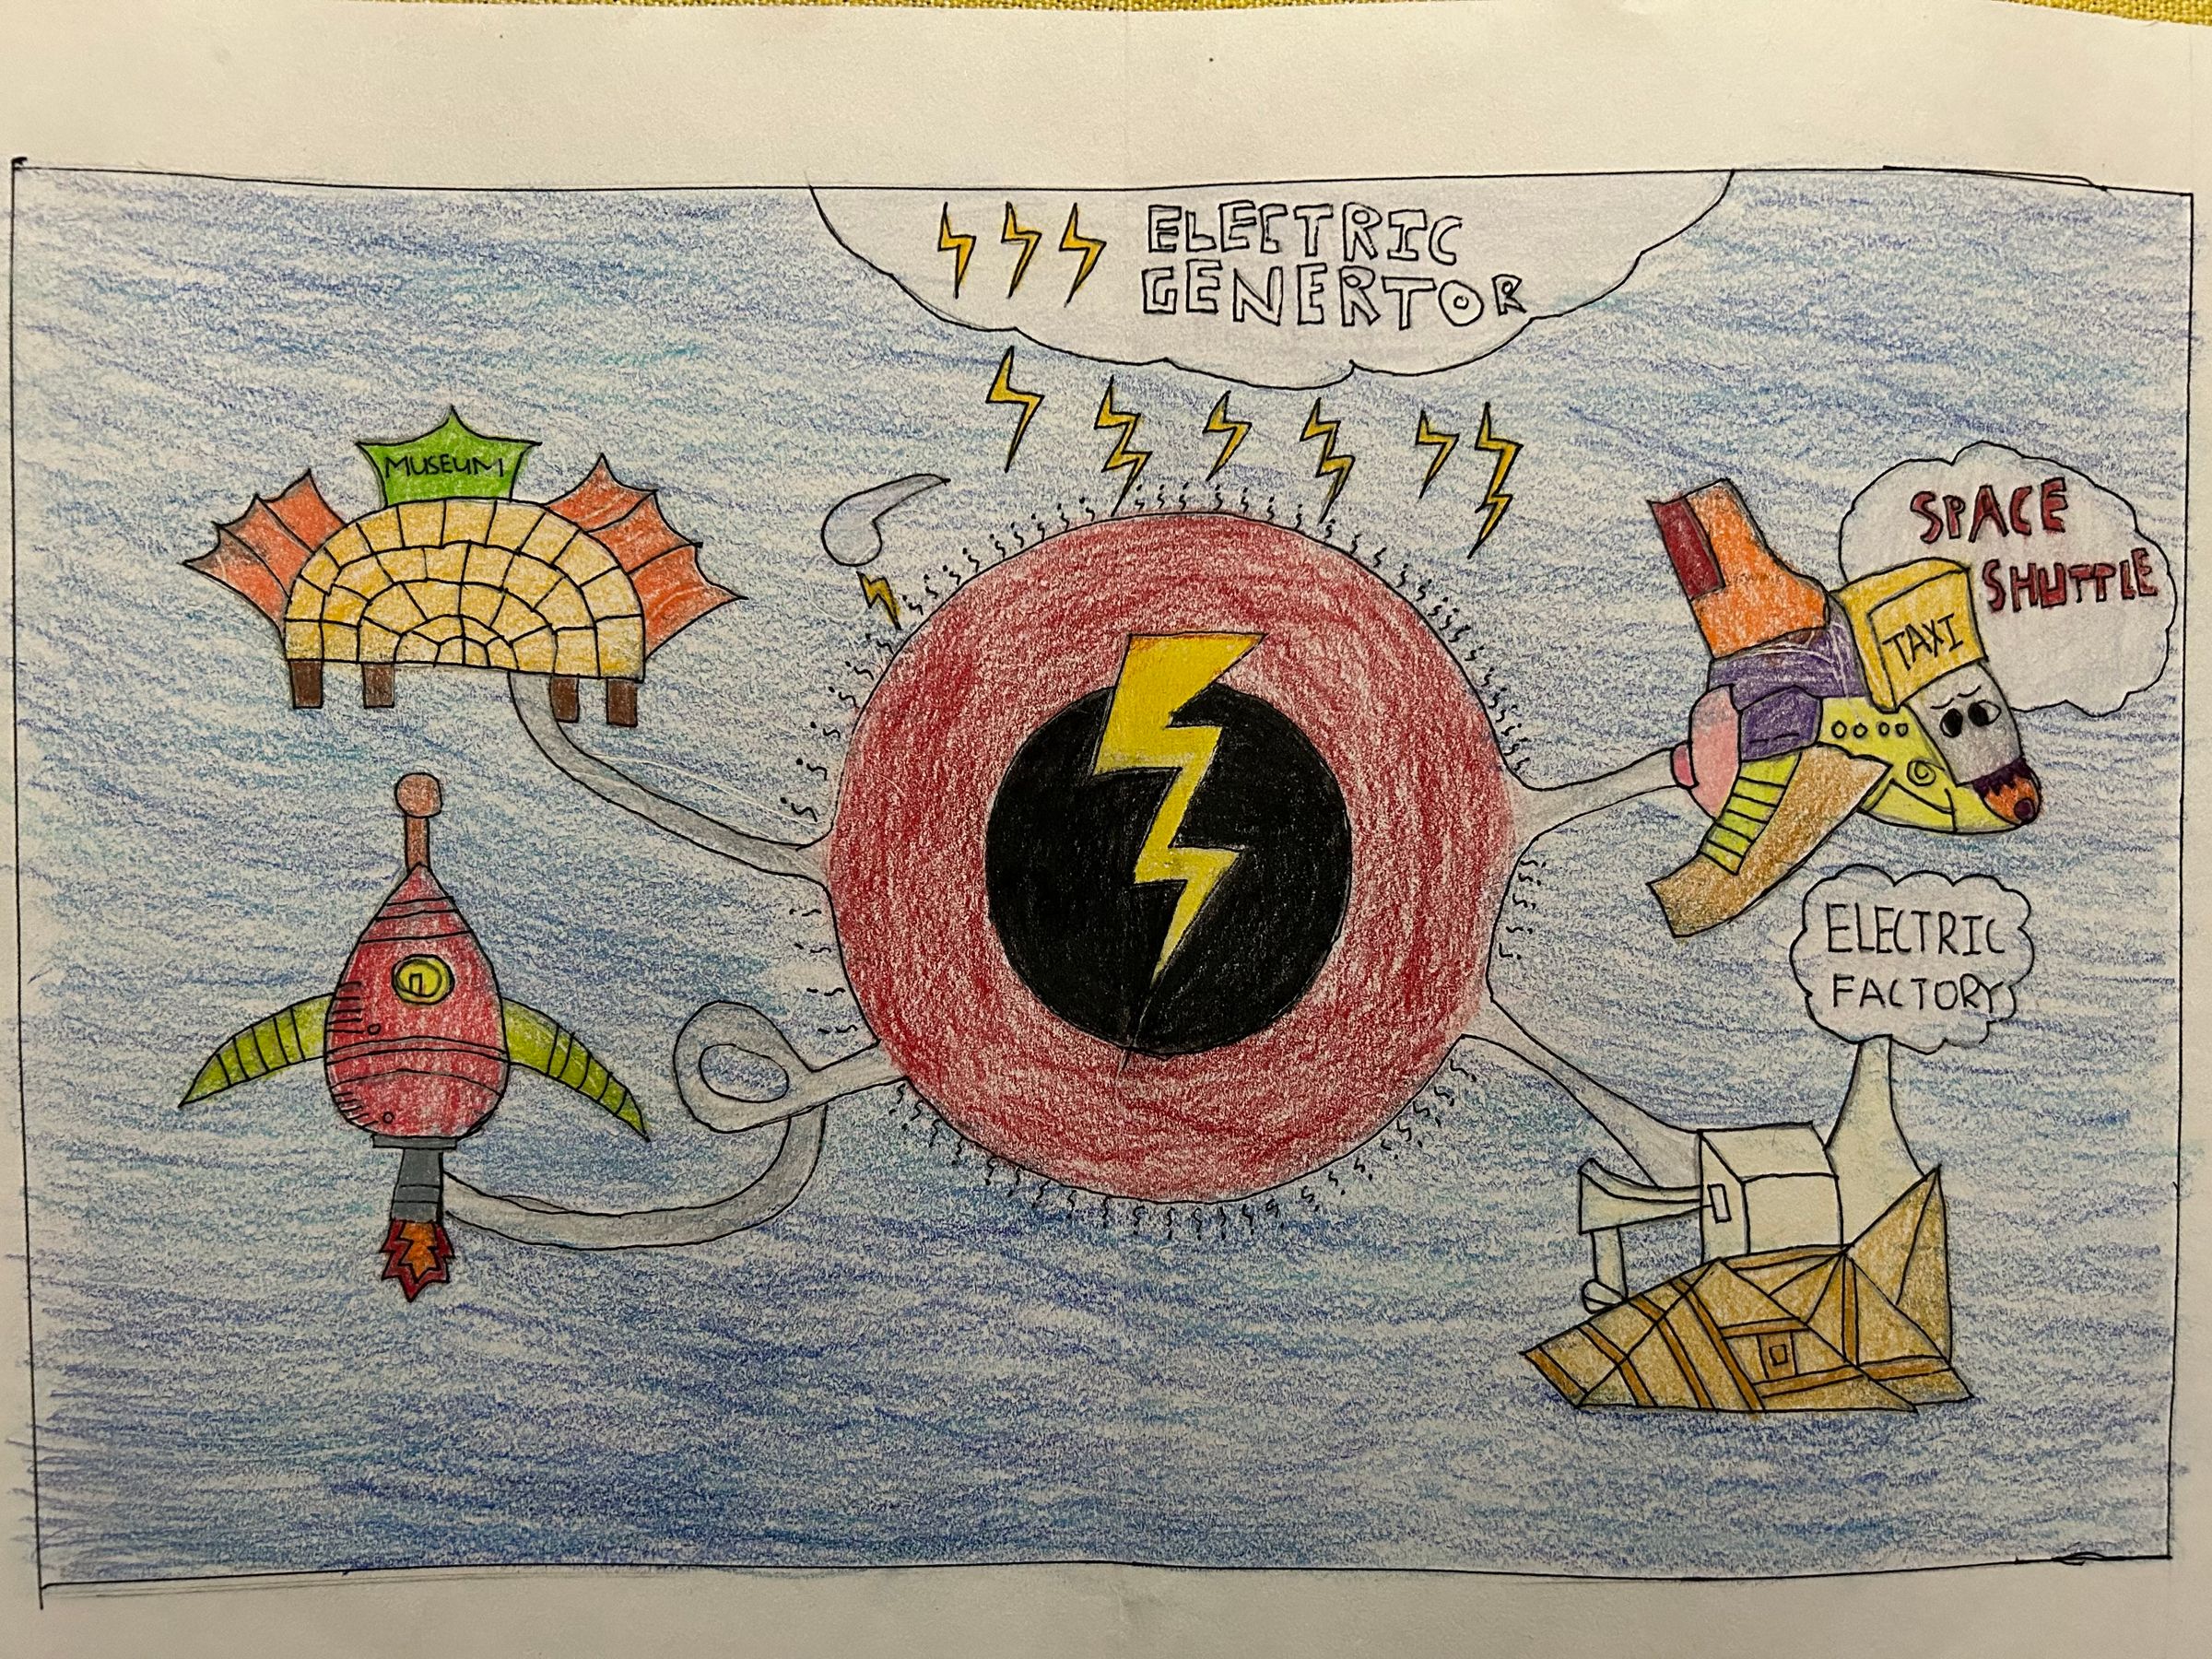 ELECTRIC
GENERTOR
MUSEUM
SPACE
SHUTTLE
TAXI
ELECTRIC
FACTORY